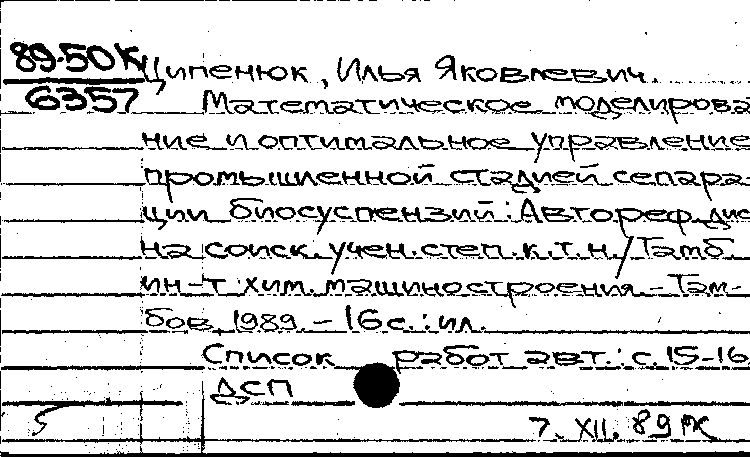 89-50К
6357
Ципенюк, Илья Яковлевич.
Математическое моделирова
ние и оптимальное управление
промышленной стадией сепара-
ции биосуспензий: Автореф. дис
на соиск. учен. степ. к.т.н./Тамб.
ин-т хим. машиностроения.-Там-
бов, 1989.-16с.:ил.
Список работ авт.: с.15-16
ДСП
7. XII. 89